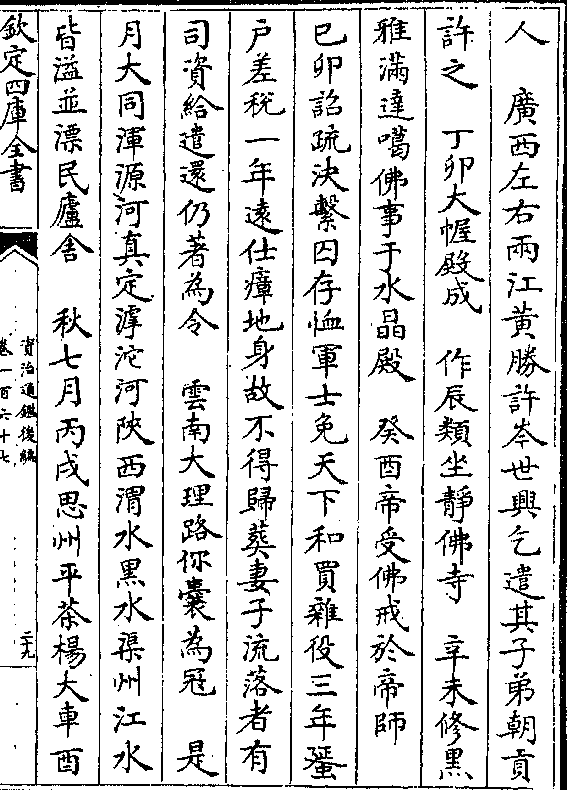 人　廣西左右兩江黃勝許岑世興乞遣其子弟朝貢
許之　丁卯大幄殿成　作辰類坐靜佛寺　辛未修黑
雅滿達噶佛事于水晶殿　癸酉帝受佛戒於帝師
巳卯詔疏決繫囚存恤軍士免天下和買雜役三年蜑
户差税一年逺仕瘴地身故不得歸葬妻子流落者有
司資給遣還仍著為令　雲南大理路你囊為冦　是
月大同渾源河真定滹沱河陜西渭水黑水渠州江水
皆溢並漂民廬舍　秋七月丙戌思州平茶楊大車酉
欽定四庫全書
資治通鑑後編
卷一百六十七
二九